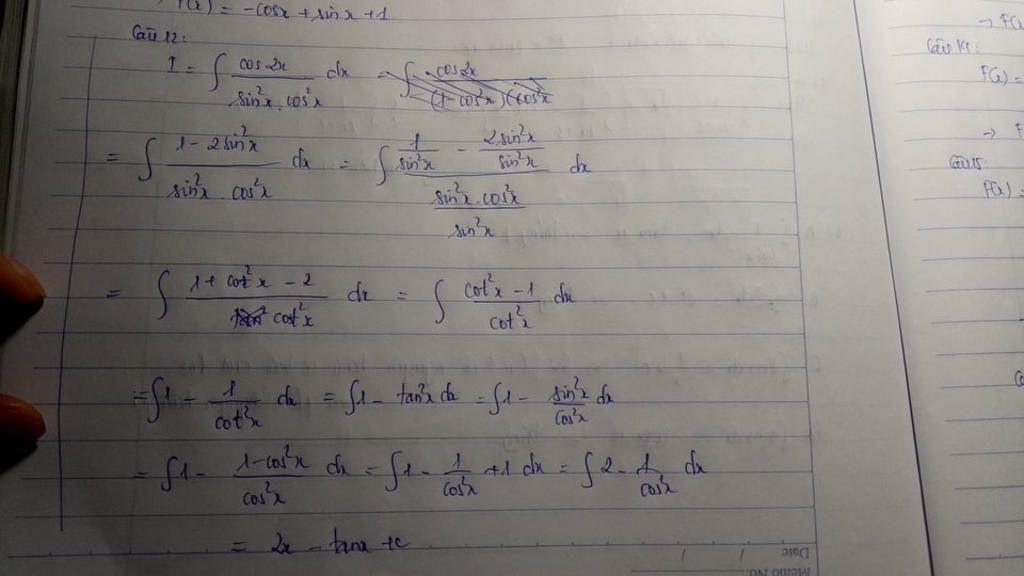 F(x) = -cosx + sinx + 1
Câu 12:
I = ∫ cos2x / (sin²x . cos²x) dx = ∫ cos2x / (1 - cos²x)(cos²x
= ∫ (1 - 2sin²x) / (sin²x . cos²x) dx = ∫ (1/sin²x - 2sin²x/sin²x) / (sin²x . cos²x / sin²x) dx
= ∫ (1 + cot²x - 2) / cot²x dx = ∫ (cot²x - 1) / cot²x dx
= ∫ 1 - 1/cot²x dx = ∫ 1 - tan²x dx = ∫ 1 - sin²x/cos²x dx
= ∫ 1 - (1-cos²x)/cos²x dx = ∫ 1 - 1/cos²x + 1 dx = ∫ 2 - 1/cos²x dx
= 2x - tanx + c
Date / /
Memo No.
→ F(x)
Câu 14:
F(x) =
→ F
Câu 15:
F(x) =